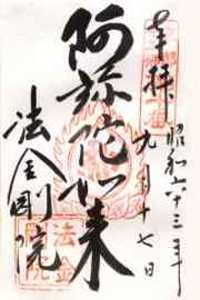 奉拝
昭和六十三年
九月十七日
阿弥陀如来
法金剛院
法金
剛院